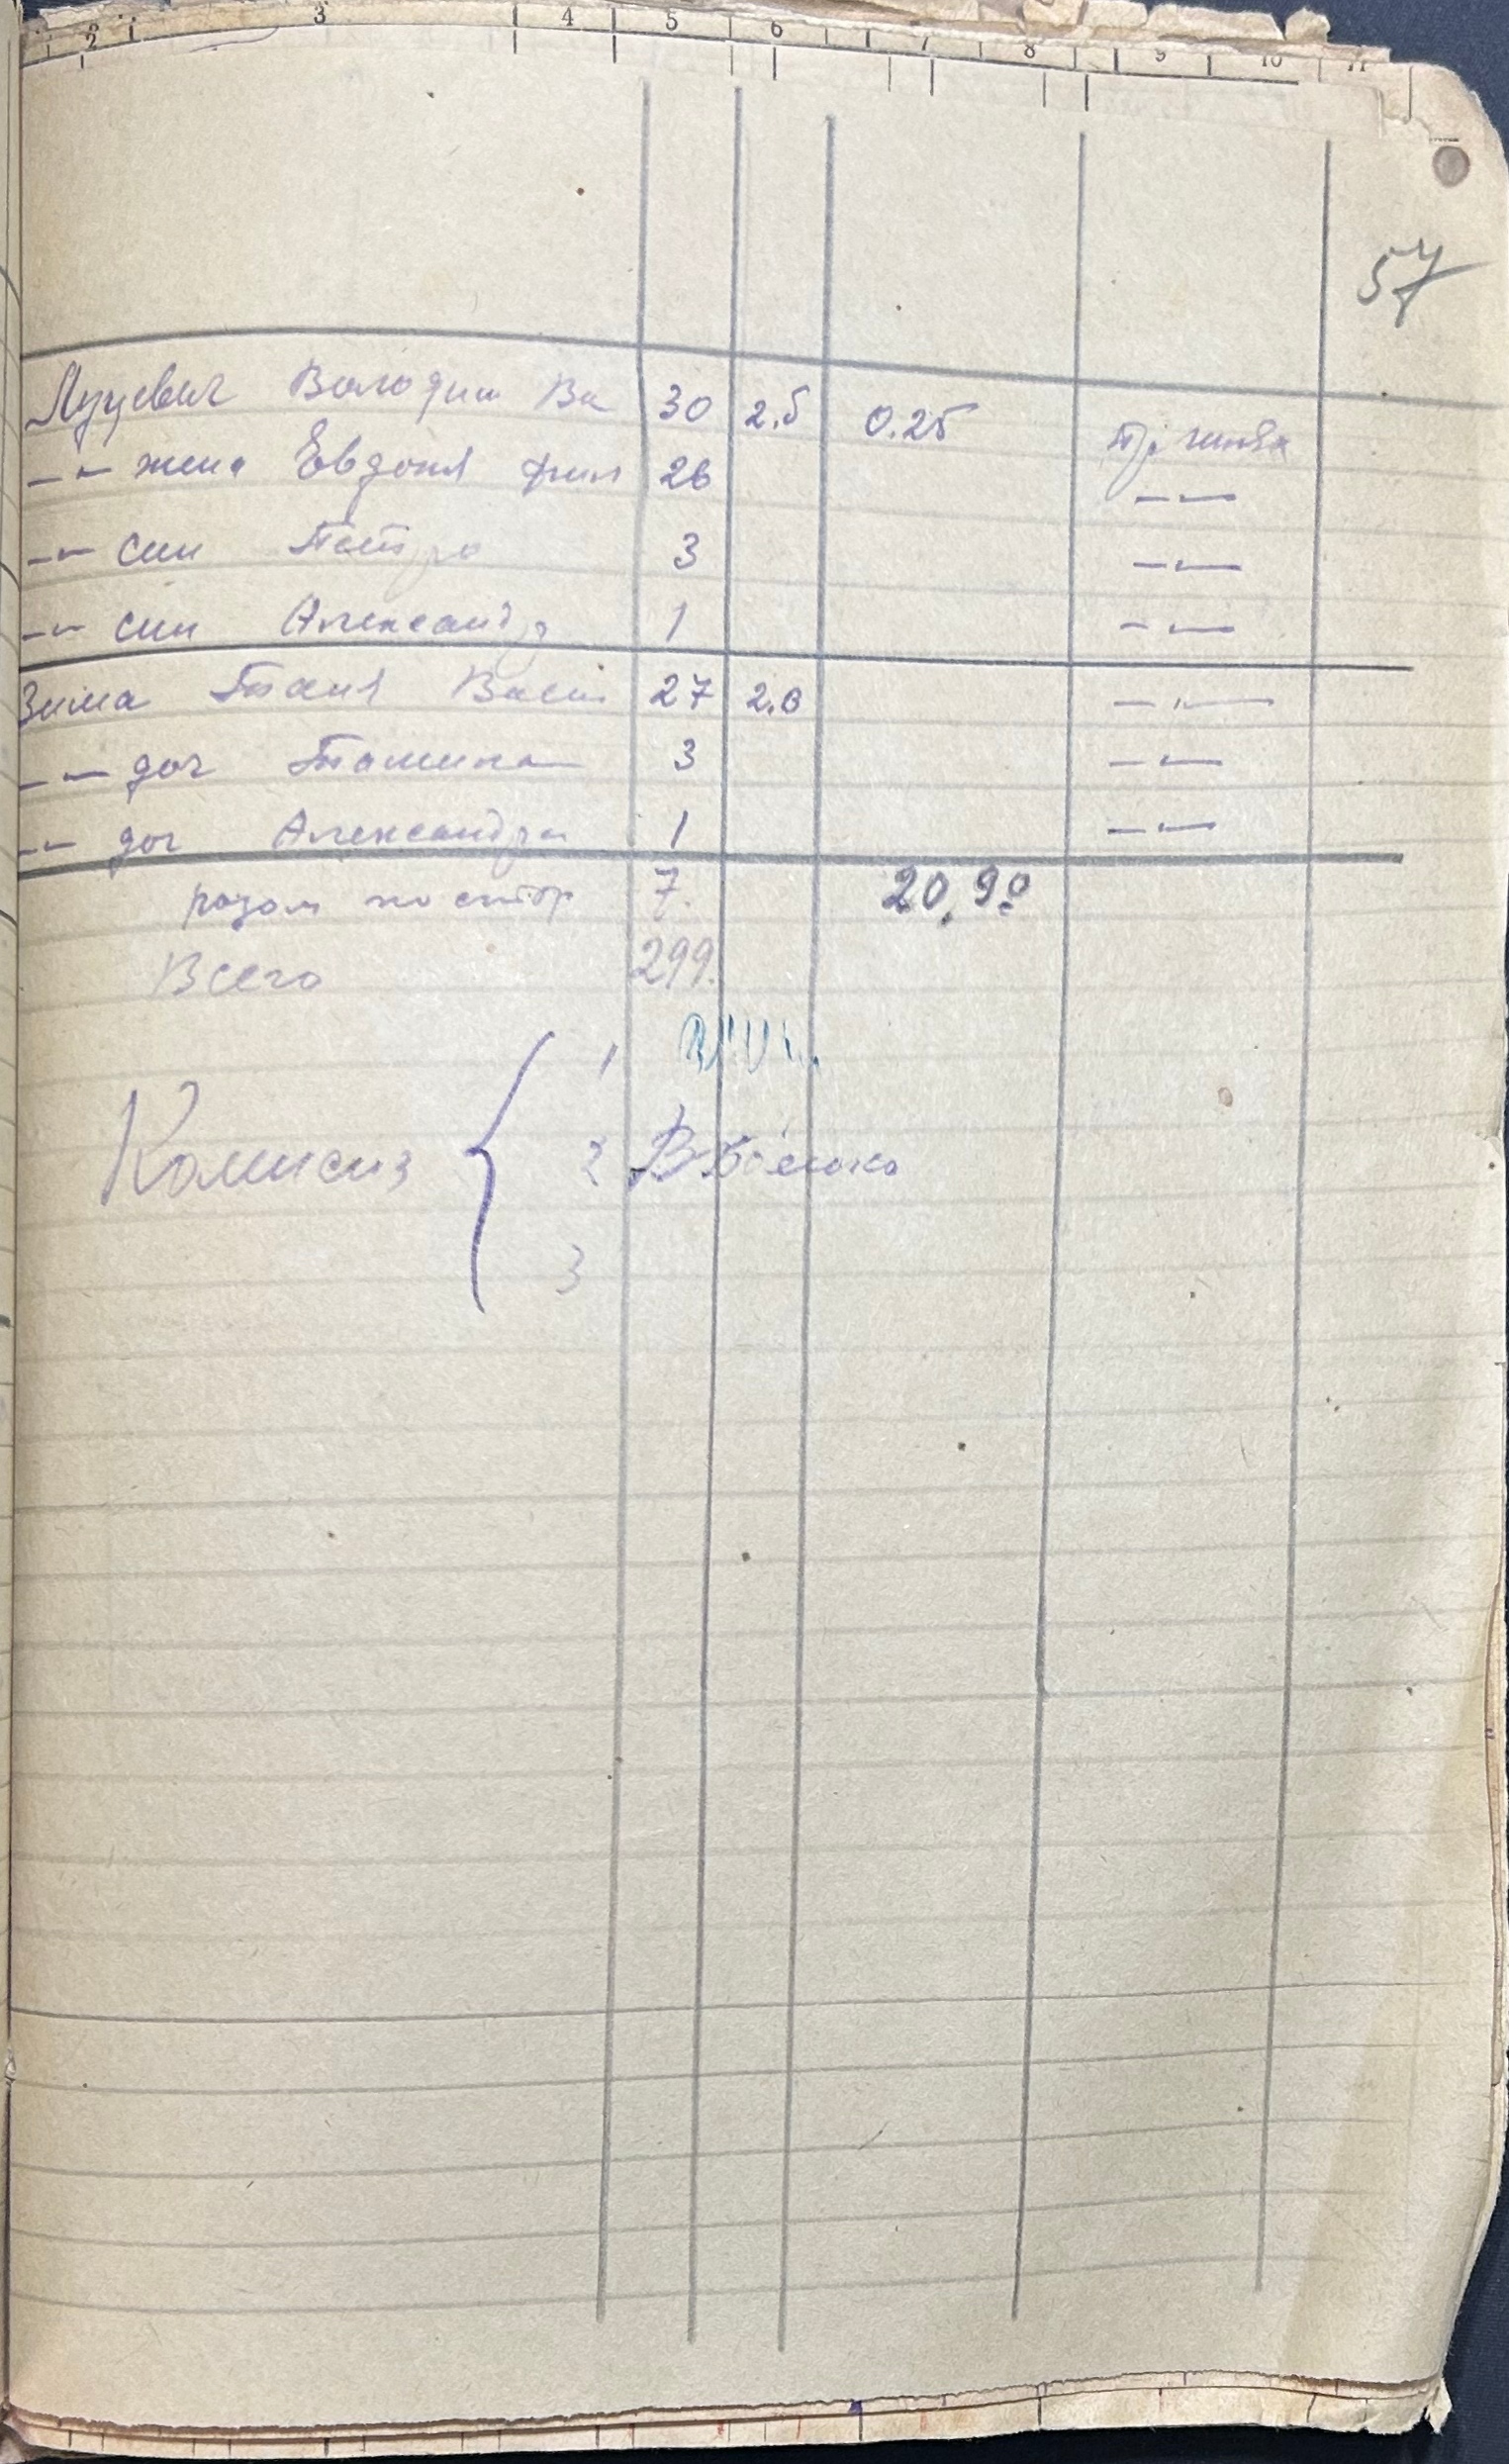 2 3 4 5 6 7 8 9 10 11
57
Луцевич Володим Ва 30 2.5 0.25
-"- жена Евдокия Фил 26 -"-
-"- син Петро 3 -"-
-"- син Александр 1 -"-
Зима Таня Васи 27 2.0 -"-
-"- доч Тамила 3 -"-
-"- доч Александра 1 -"-
разом по стор 7. 20,90
Всего 299.
Комисия
1
2 В
3